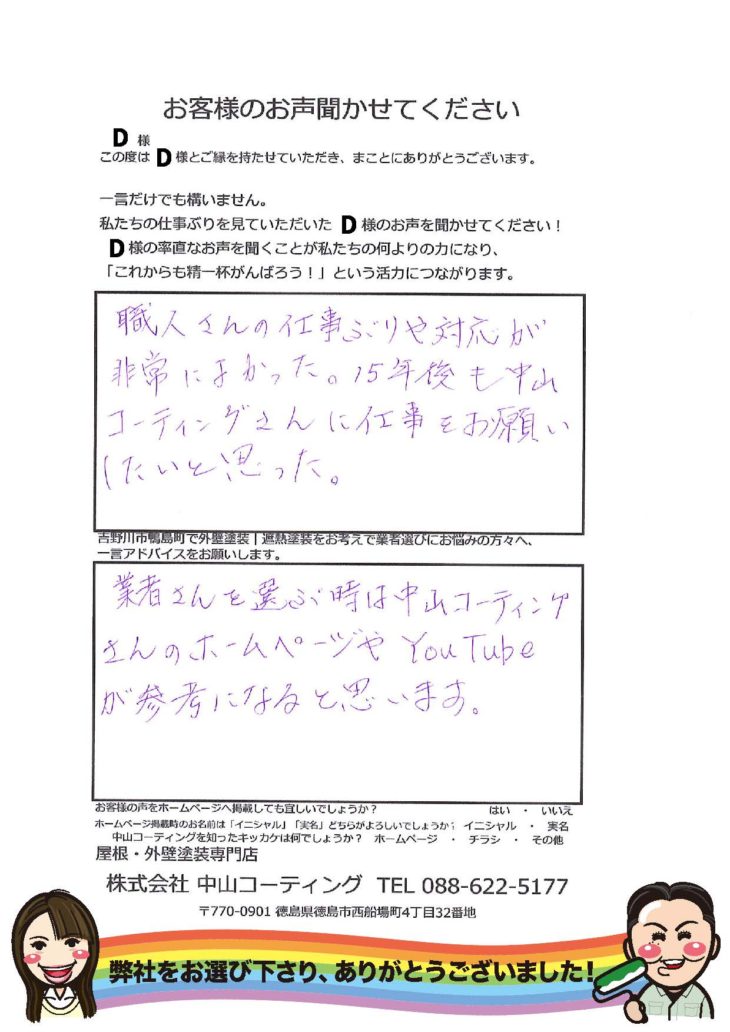 お客様のお声聞かせてください
D 様
この度は D 様とご縁を持たせていただき、まことにありがとうございます。
一言だけでも構いません。
私たちの仕事ぶりを見ていただいた D 様のお声を聞かせてください！
D 様の率直なお声を聞くことが私たちの何よりの力になり、
「これからも精一杯がんばろう！」という活力につながります。
職人さんの仕事ぶりや対応が
非常によかった。15年後も中山
コーティングさんに仕事をお願い
したいと思った。
吉野川市鴨島町で外壁塗装｜遮熱塗装をお考えで業者選びにお悩みの方々へ、
一言アドバイスをお願いします。
業者さんを選ぶ時は中山コーティング
さんのホームページやYouTube
が参考になると思います。
お客様の声をホームページへ掲載しても宜しいでしょうか？ はい ・ いいえ
ホームページ掲載時のお名前は「イニシャル」「実名」どちらがよろしいでしょうか？ イニシャル ・ 実名
中山コーティングを知ったキッカケは何でしょうか？ ホームページ ・ チラシ ・ その他
屋根・外壁塗装専門店
株式会社 中山コーティング TEL 088-622-5177
〒770-0901 徳島県徳島市西船場町4丁目32番地
弊社をお選び下さり、ありがとうございました！